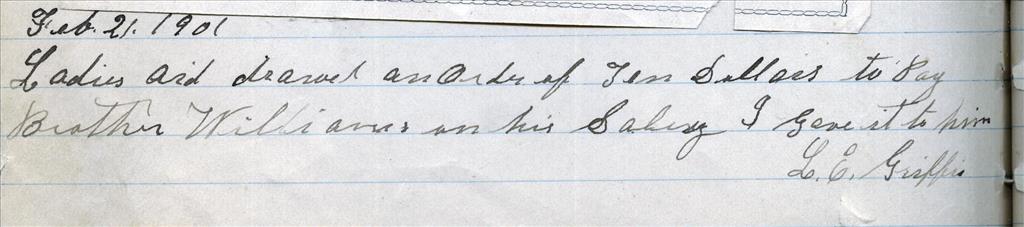 Feb. 21. 1901
Ladies Aid drawed an Order of Ten Dollars to Pay
Brother Williams on his Salery I gave it to him
L. E. Griffis